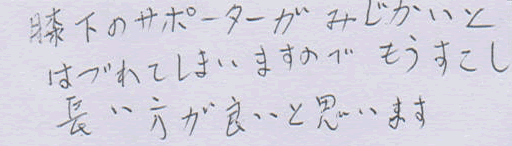 膝下のサポーターがみじかいと
はづれてしまいますのでもうすこし
長い方が良いと思います